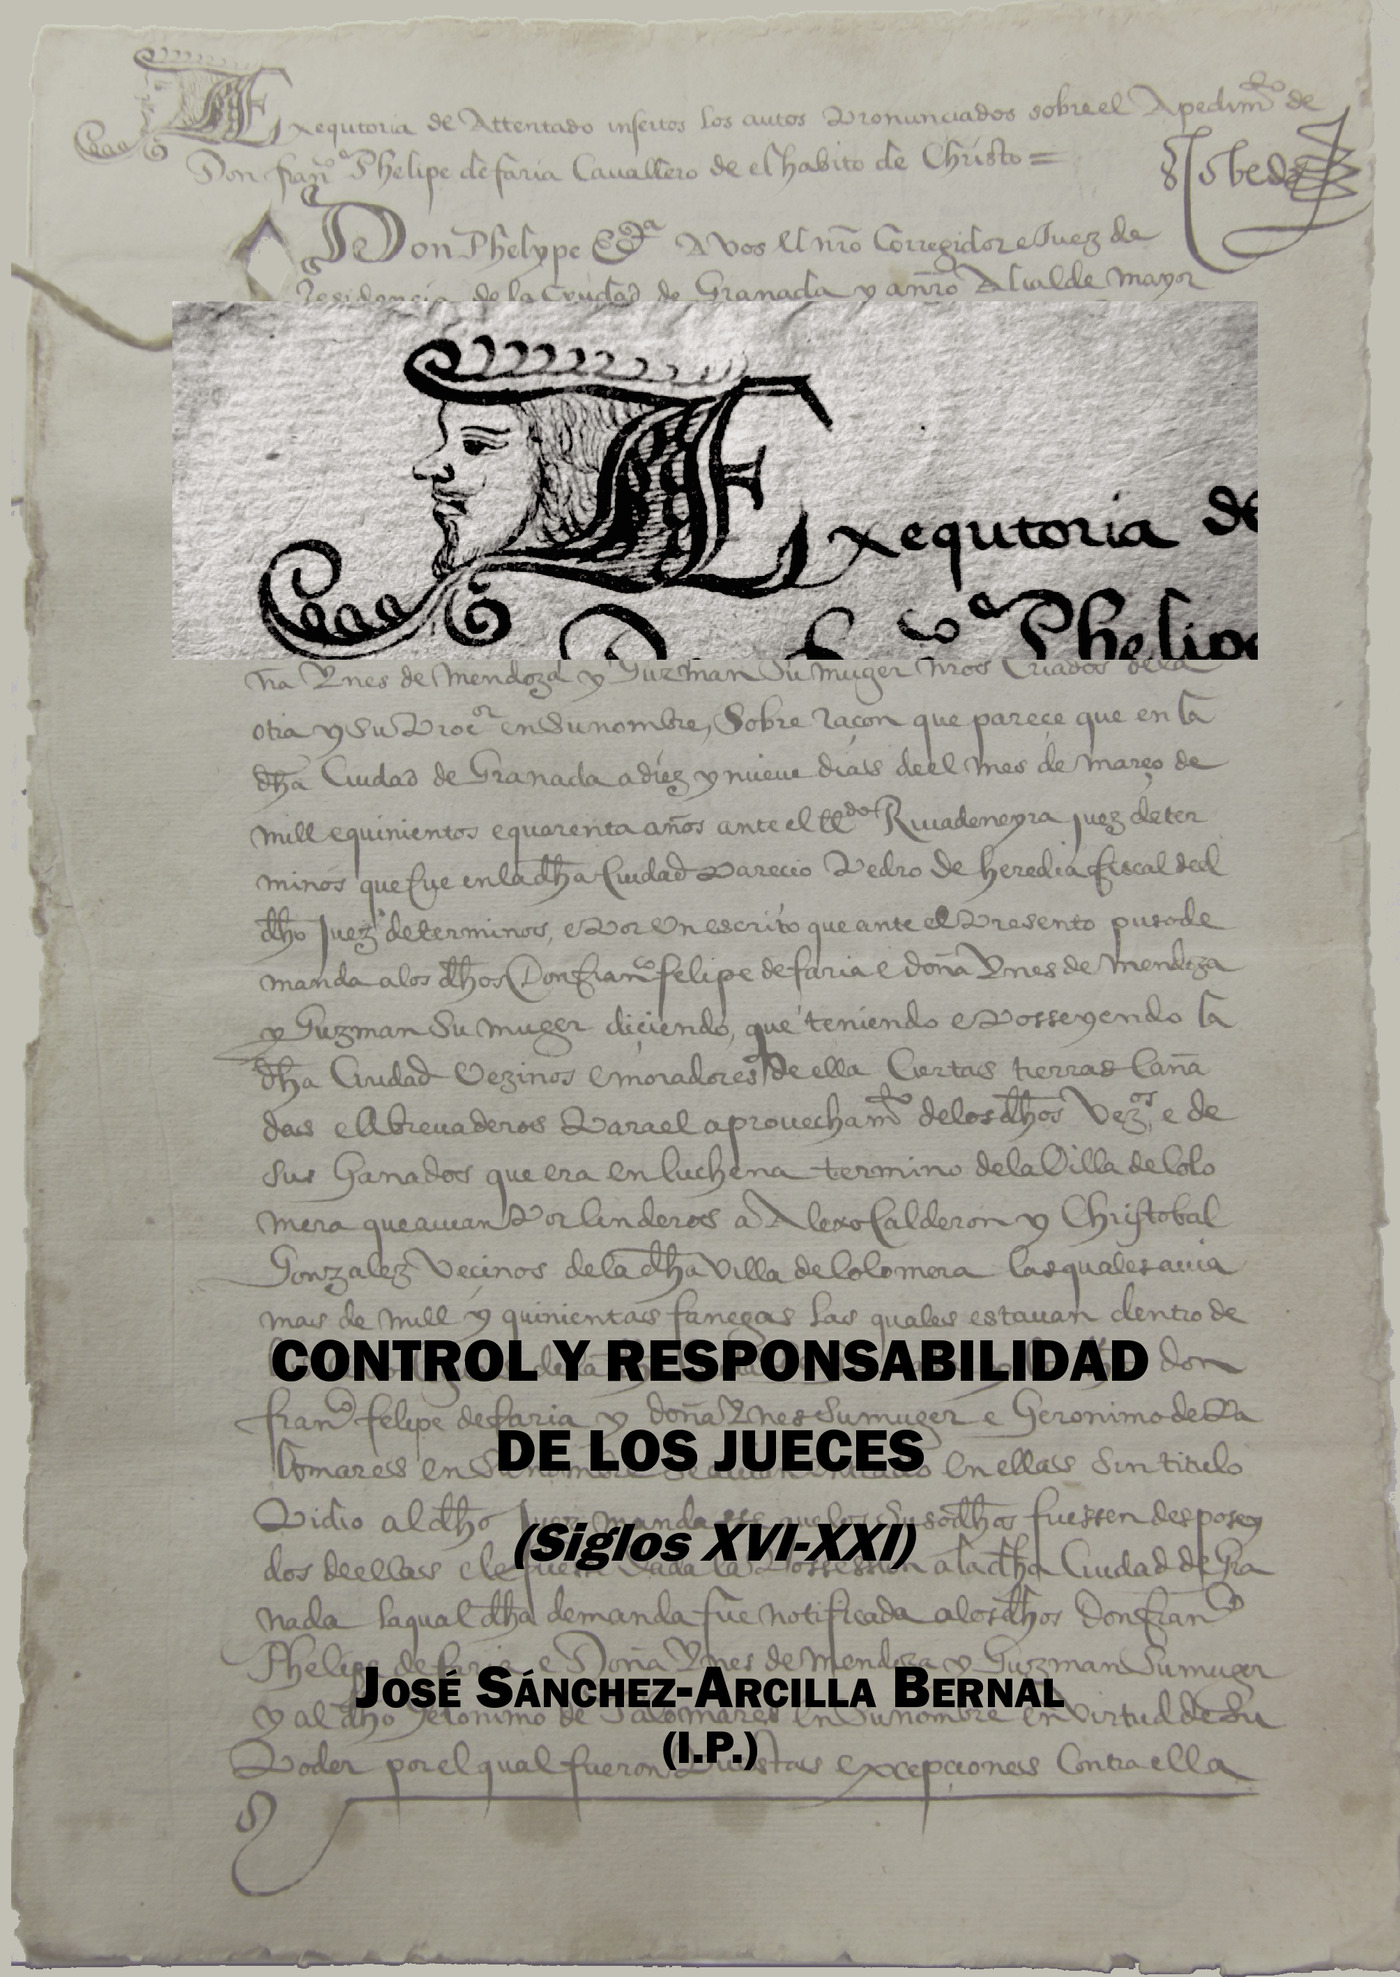 Exequtoria de Attentado insertos los autos Pronunciados sobre el Apedimto de
Don franco Phelipe de faria Cauallero de el habito de Christo =
Don Phelype Era A Vos El nro Corregidor e Juez de
Residencia de la Ciudad de Granada y a nro Alcalde mayor
Exequtoria de
Phelipe
ña Ynes de Mendoza y Guzman Su muger nros Criados de la
otra y Su Procor en Su nombre, Sobre raçon que pareçe que en la
dha Ciudad de Granada a diez y nueue dias de el Mes de março de
mill e quinientos e quarenta años ante el lldo Riuadeneyra juez de ter
minos que fue en la dha Ciudad Parecio Pedro de heredia fiscal del
dho Juez de terminos, e Por Un escrito que ante el Presento puso de
manda a los dhos Don franco felipe de faria e doña Ynes de Mendoza
y Guzman Su Muger diçiendo, que teniendo e Posseyendo la
dha Ciudad Vezinos e moradores de ella Ciertas tierras Caña
das e Abreuaderos Para el aprouechamto de los dhos Vezos, e de
sus Ganados que era en luchena termino de la Villa de Colo
mera que auian Por linderos a Alexo Calderon y Christobal
Gonzalez Vecinos de la dha Villa de Colomera las quales auia
mas de mill y quinientas fanegas las quales estauan dentro de
don
CONTROL Y RESPONSABILIDAD
franco felipe de faria y doña Ynes Su muger e Geronimo de Pa
DE LOS JUECES
lomares en Su nombre en ellas Sin titulo
Pidio al dho Juez mandasse que los Susodhos fuessen desposey
(Siglos XVI-XXI)
dos de ellas e le fuesse dada la Possession a la dha Ciudad de Gra
nada la qual dha demanda fue notificada a los dhos Don franco
Phelipe de faria e Doña Ynes de Mendoza y Guzman Su muger
JOSÉ SÁNCHEZ-ARCILLA BERNAL
y al dho Geronimo de Palomares en Su nombre en Virtud de Su
(I.P.)
Poder por el qual fueron Puestas excepciones Contra ella